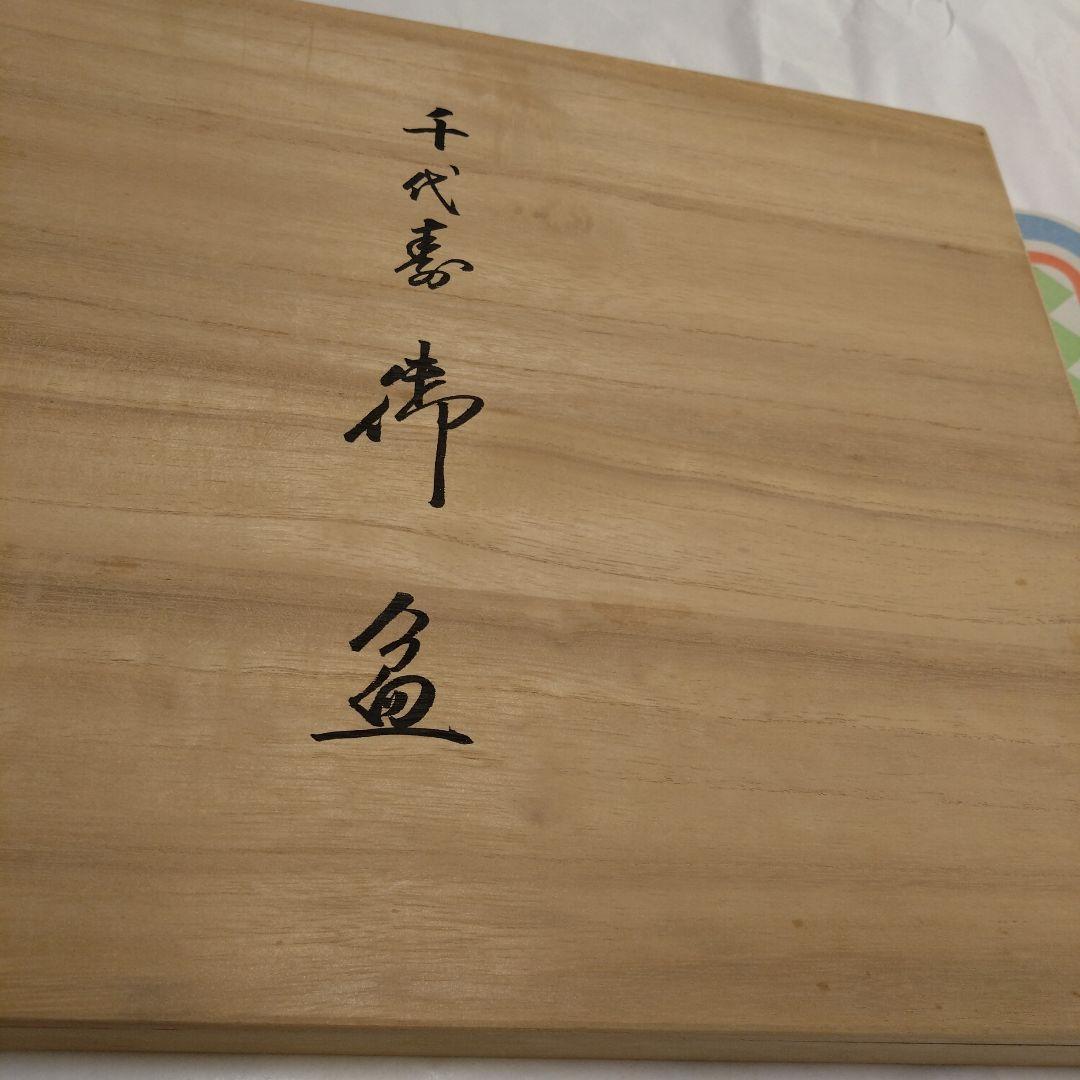 千代寿 御盆